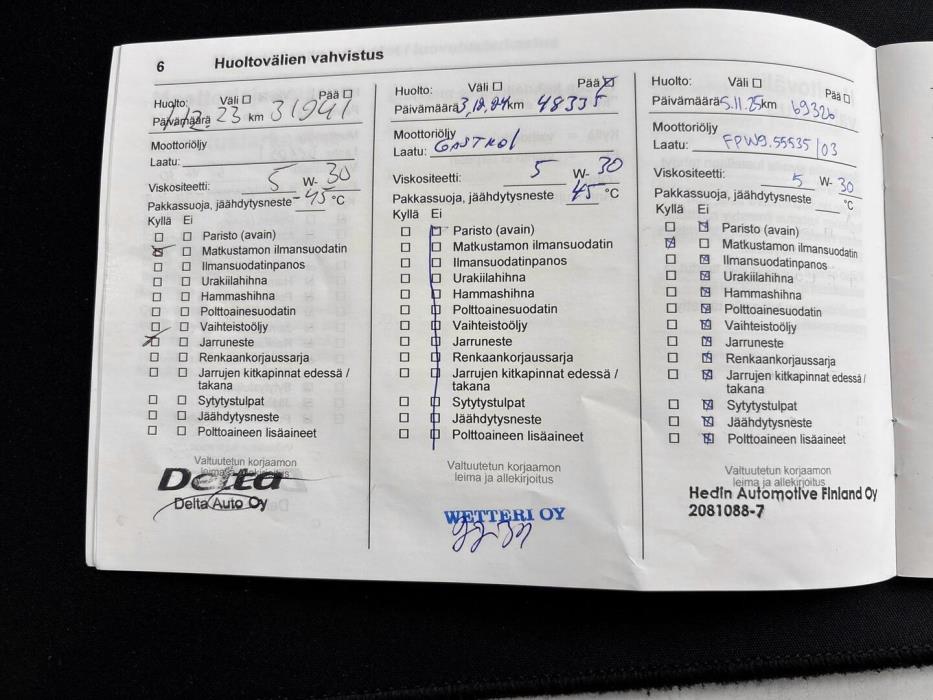 6 Huoltovälien vahvistus
Huolto: Väli Pää
Päivämäärä 23 km 31941
Moottoriöljy
Laatu:
Viskositeetti: 5 W- 30
Pakkassuoja, jäähdytysneste -45 °C
Kyllä Ei
Paristo (avain)
Matkustamon ilmansuodatin
Ilmansuodatinpanos
Urakiilahihna
Hammashihna
Polttoainesuodatin
Vaihteistoöljy
Jarruneste
Renkaankorjaussarja
Jarrujen kitkapinnat edessä /
takana
Sytytystulpat
Jäähdytysneste
Polttoaineen lisäaineet
Valtuutetun korjaamon
leima ja allekirjoitus
Delta
Delta Auto Oy
Huolto: Väli Pää
Päivämäärä 3,12.24 km 48335
Moottoriöljy
Laatu: Castrol
Viskositeetti: 5 W- 30
Pakkassuoja, jäähdytysneste 45 °C
Kyllä Ei
Paristo (avain)
Matkustamon ilmansuodatin
Ilmansuodatinpanos
Urakiilahihna
Hammashihna
Polttoainesuodatin
Vaihteistoöljy
Jarruneste
Renkaankorjaussarja
Jarrujen kitkapinnat edessä /
takana
Sytytystulpat
Jäähdytysneste
Polttoaineen lisäaineet
Valtuutetun korjaamon
leima ja allekirjoitus
WETTERI OY
Huolto: Väli Pää
Päivämäärä 5.11.25 km 69326
Moottoriöljy
Laatu: FPW9.55535/03
Viskositeetti: 5 W- 30
Pakkassuoja, jäähdytysneste °C
Kyllä Ei
Paristo (avain)
Matkustamon ilmansuodatin
Ilmansuodatinpanos
Urakiilahihna
Hammashihna
Polttoainesuodatin
Vaihteistoöljy
Jarruneste
Renkaankorjaussarja
Jarrujen kitkapinnat edessä /
takana
Sytytystulpat
Jäähdytysneste
Polttoaineen lisäaineet
Valtuutetun korjaamon
leima ja allekirjoitus
Hedin Automotive Finland Oy
2081088-7